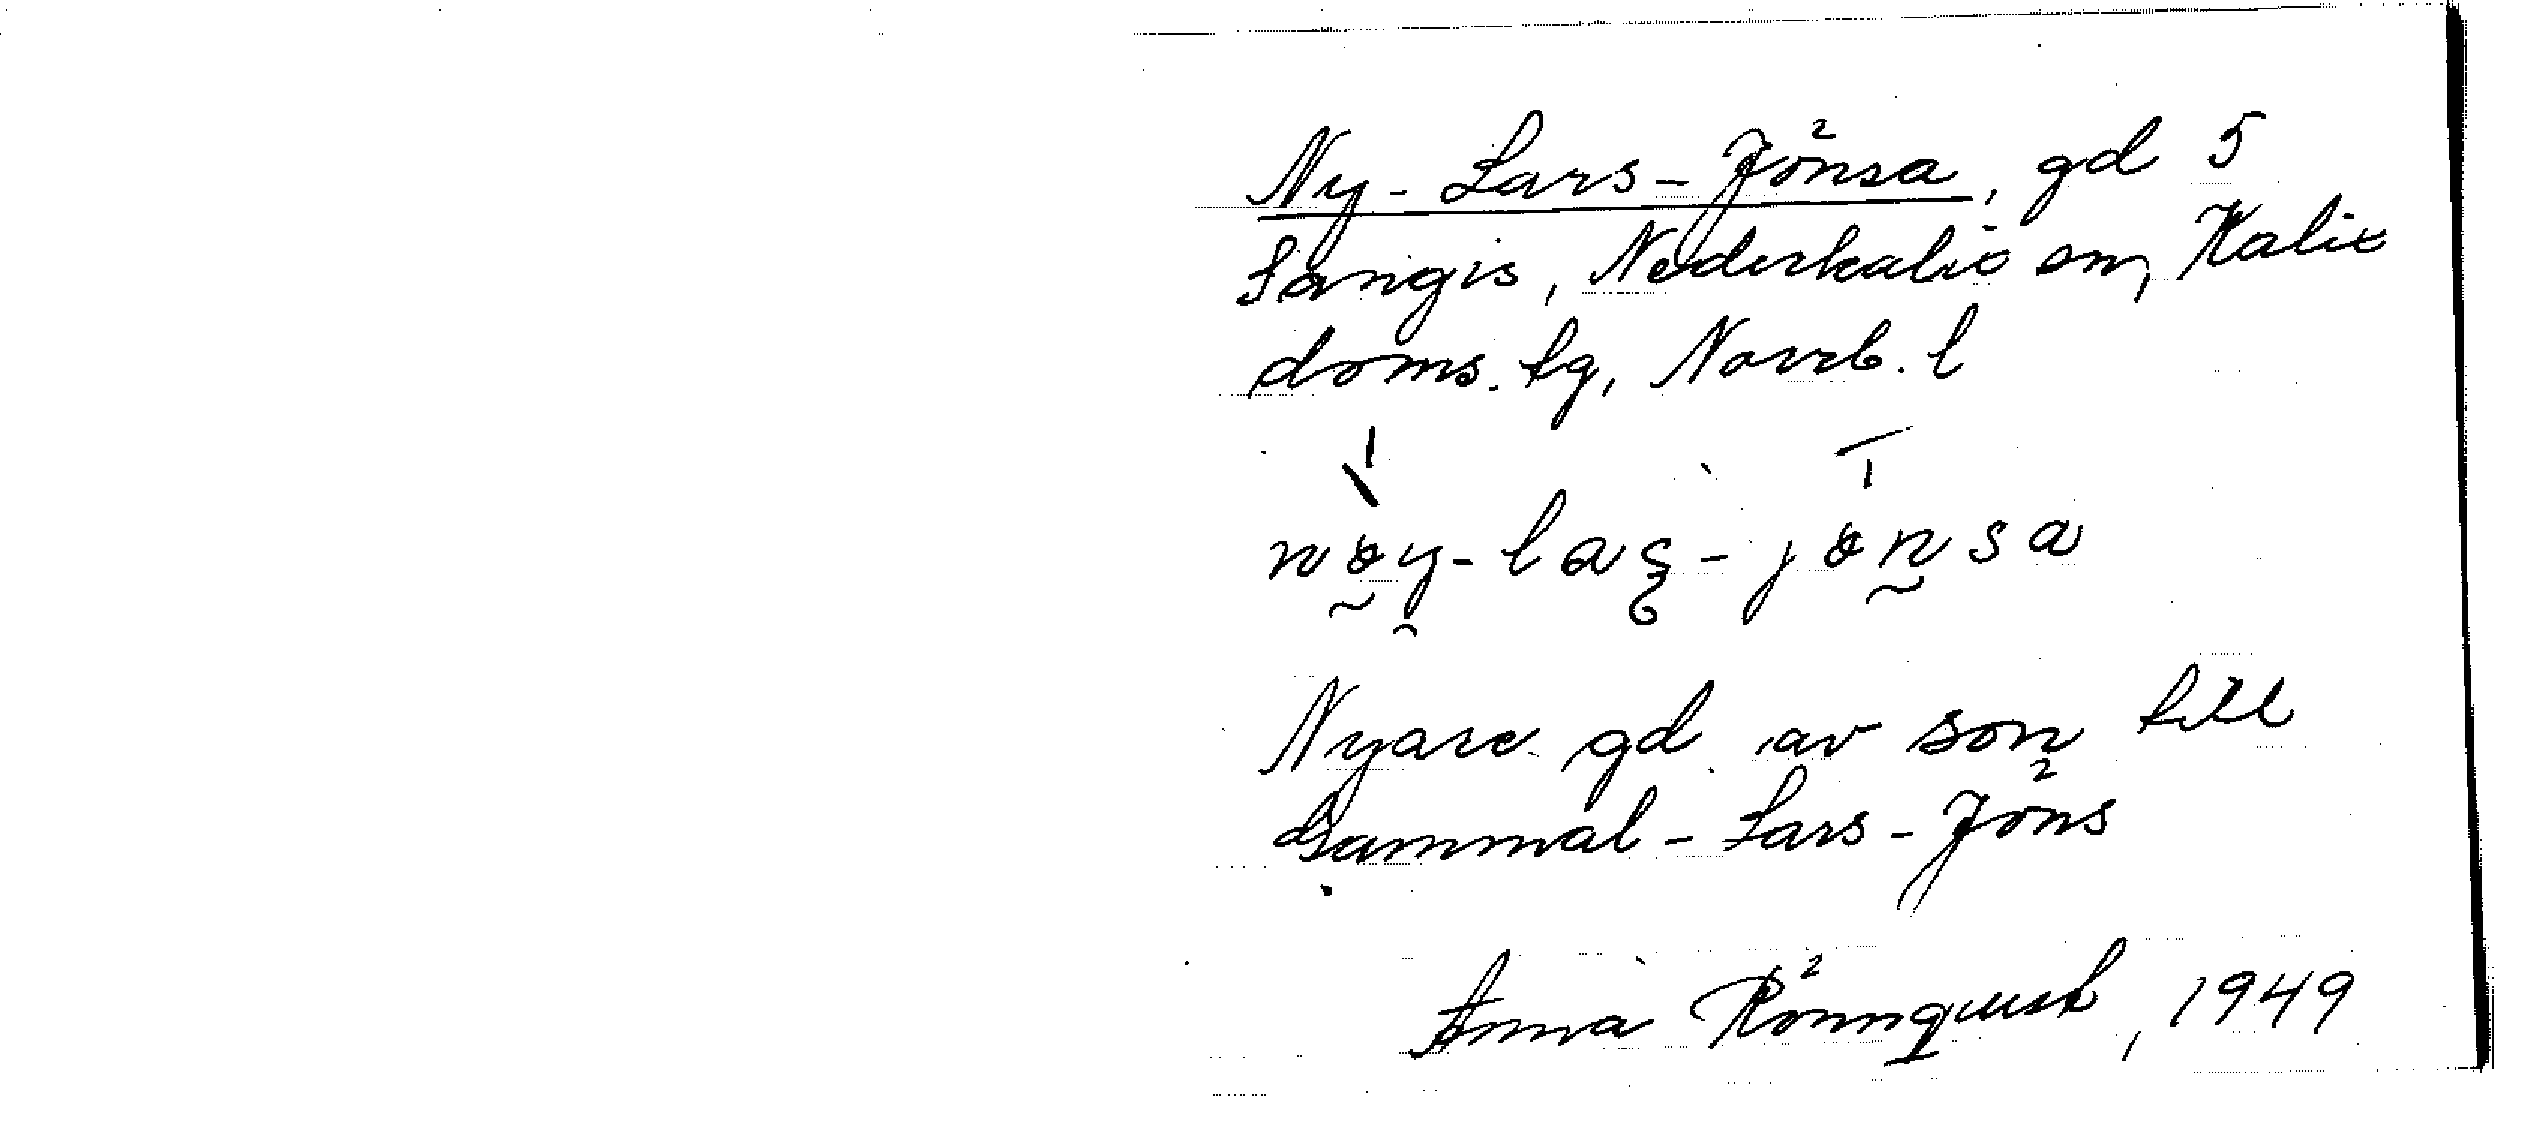 Ny-Lars-Jönsa, gd 5
Sangis, Nederkalix sn, Kalix
doms. tg, Norrb. l
Nyare gd av son till
Gammal-Lars-Jöns
Anna Rönnquist, 1949